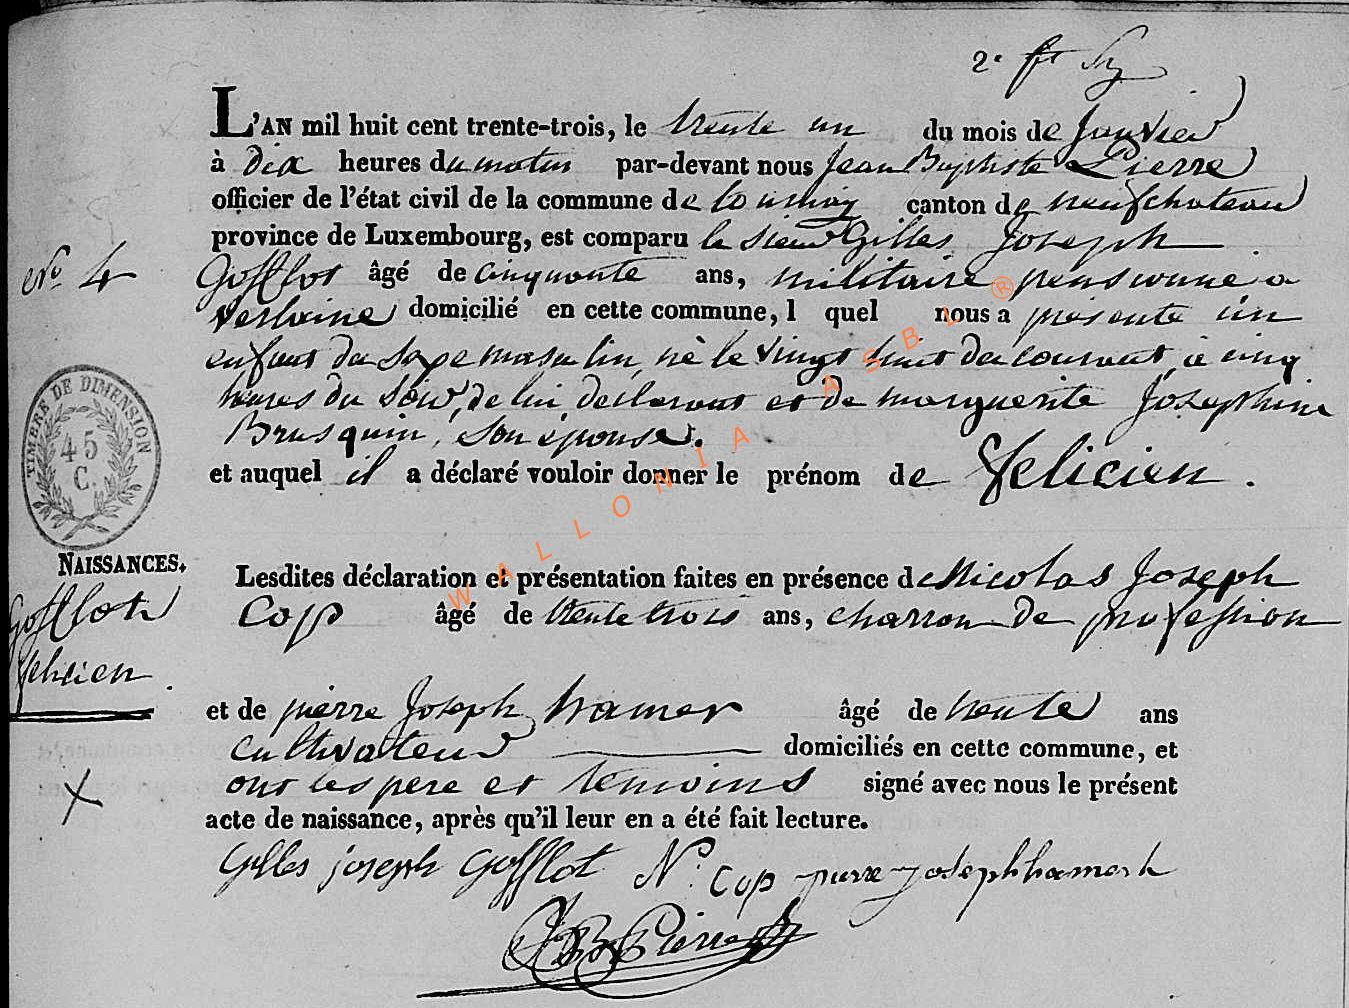 2e
L'AN mil huit cent trente-trois, le trente un du mois de Janvier
à dix heures du matin par-devant nous Jean Baptiste Pierre
officier de l'état civil de la commune de tournay canton de neufchateau
province de Luxembourg, est comparu le sieur Gilles Joseph
No. 4 Gofflot âgé de cinquante ans, militaire pensionné a
verlaine domicilié en cette commune, l quel nous a présenté un
enfant du sexe masculin, né le vingt huit du courant, à cinq
heures du soir, de lui déclarant et de marguerite Josephine
Brusquin, son épouse.
et auquel il a déclaré vouloir donner le prénom de Felicien.
TIMBRE DE DIMENSION
45
C.
NAISSANCES.
Gofflot
felicien
Lesdites déclaration et présentation faites en présence de Nicolas Joseph
Cop âgé de trente trois ans, charron de profession
et de pierre Joseph hamer âgé de trente ans
cultivateur domiciliés en cette commune, et
ont les pere et temoins signé avec nous le présent
acte de naissance, après qu'il leur en a été fait lecture.
Gilles joseph Gofflot N. Cop pierre joseph hamerk
JB Pierre
WALLONIA ASBL ®